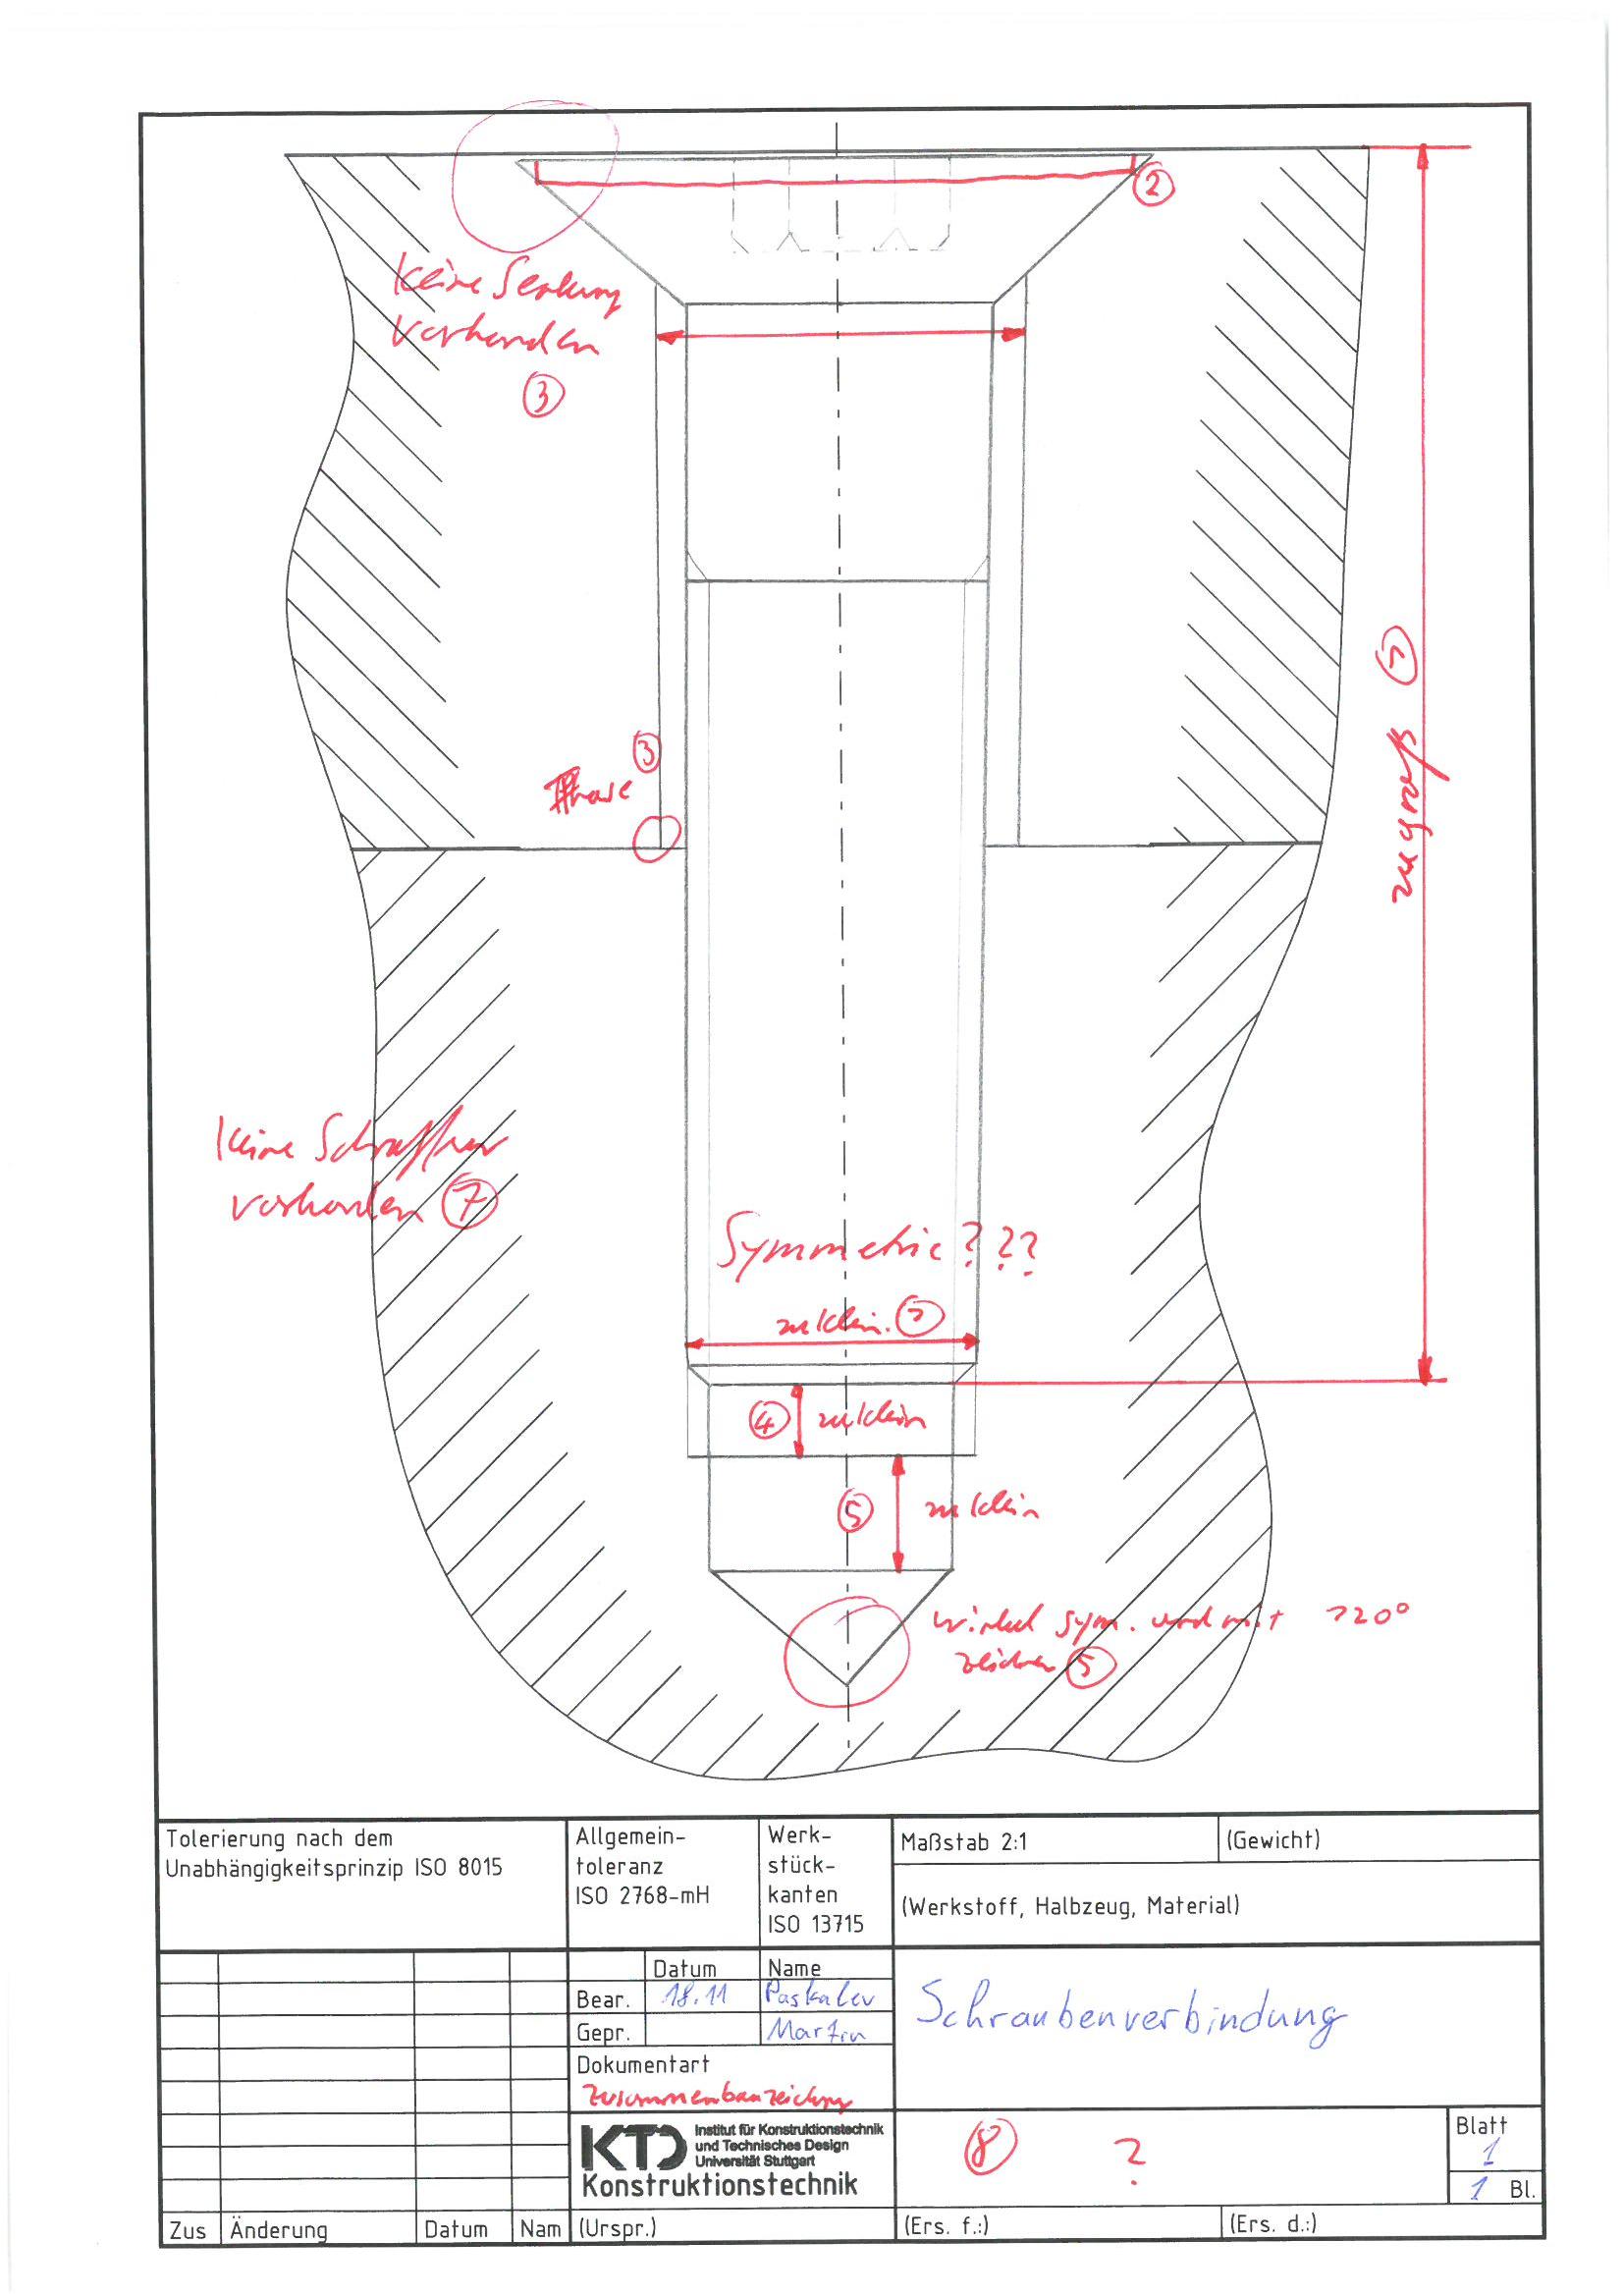 ②
Keine Senkung
vorhanden
③
③
Phase
zu groß
Keine Schraffur
vorhanden ⑦
Symmetrie ???
zu klein.
④ zu klein
⑤ zu klein
Winkel sym. und mit 120°
zeichnen ⑤
Tolerierung nach dem
Unabhängigkeitsprinzip ISO 8015
Allgemein-
toleranz
ISO 2768-mH
Werk-
stück-
kanten
ISO 13715
Maßstab 2:1
(Gewicht)
(Werkstoff, Halbzeug, Material)
Datum Name
Bear. 18.11 Paskalev
Gepr. Martin
Schraubenverbindung
Dokumentart
Zusammenbauzeichng
KTD Institut für Konstruktionstechnik
und Technisches Design
Universität Stuttgart
Konstruktionstechnik
⑧ ?
Blatt
1
1 Bl.
Zus Änderung Datum Nam (Urspr.) (Ers. f.:) (Ers. d.:)